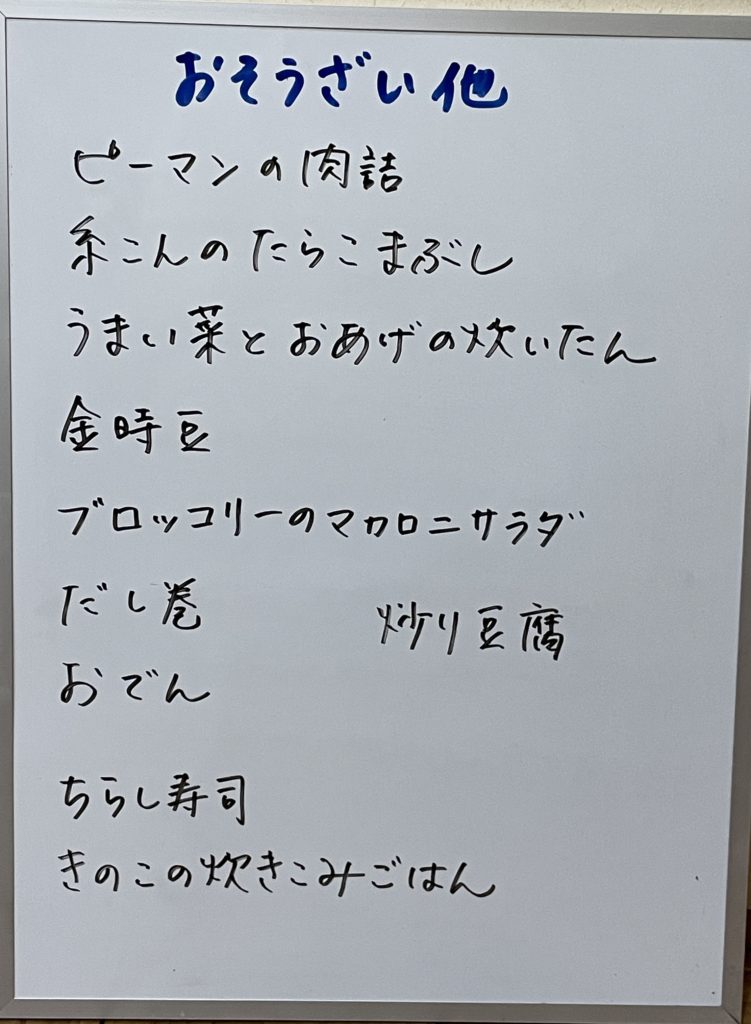 おそうざい他
ピーマンの肉詰
糸こんのたらこまぶし
うまい菜とおあげの炊いたん
金時豆
ブロッコリーのマカロニサラダ
だし巻
炒り豆腐
おでん
ちらし寿司
きのこの炊きこみごはん